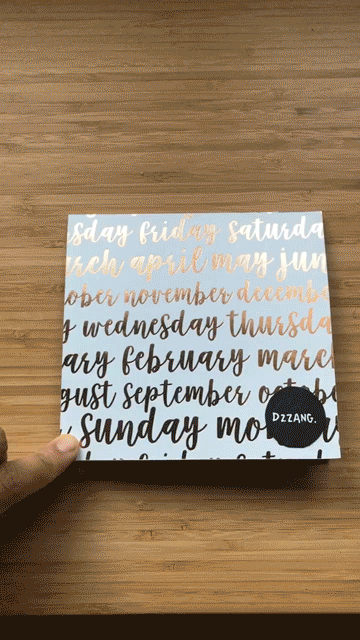 sday friday saturda
arch april may jun
ober november decembe
y wednesday thursda
ary february marc
gust september octob
sunday mo
DZZANG.